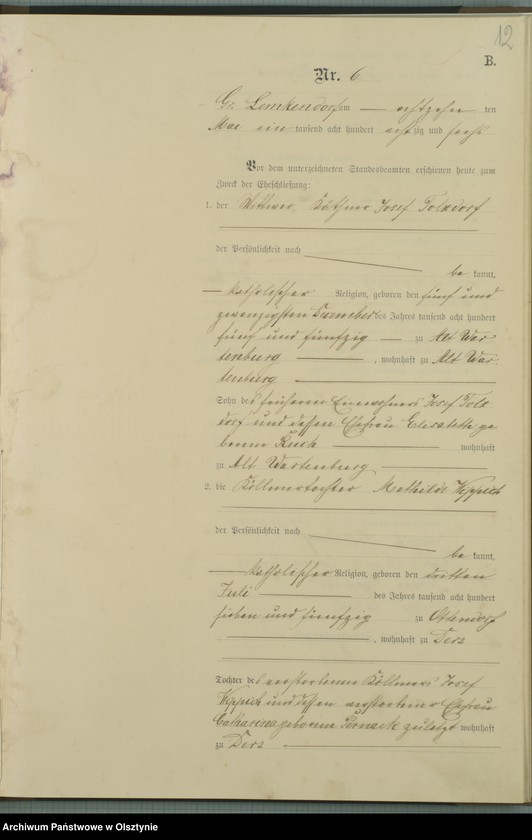 12
B.
Nr. 6
Gr. Lemkendorf am — achtzehn ten
Mai ein tausend acht hundert achtzig und sechs
Vor dem unterzeichneten Standesbeamten erschienen heute zum
Zweck der Eheschließung:
1. der Wittwer, Käthner Josef Tolxdorf
der Persönlichkeit nach
be kannt,
katholischer Religion, geboren den fünf und
zwanzigsten Dezember des Jahres tausend acht hundert
fünf und fünfzig — zu Alt War
tenburg — , wohnhaft zu Alt War
tenburg
Sohn des früheren Einwohners Josef Tolx
dorf und dessen Ehefrau Elisabeth ge
borene wohnhaft
zu Alt Wartenburg
2. die Köllmertochter Mathilde Hippich
der Persönlichkeit nach
be kannt,
katholischer Religion, geboren den dritten
Juli des Jahres tausend acht hundert
sieben und fünfzig zu Ottendorf
, wohnhaft zu Derz
Tochter des verstorbenen Köllmers Josef
Hippich und dessen verstorbener Ehefrau
Catharina geborene zuletzt wohnhaft
zu Derz
Archiwum Państwowe w Olsztynie